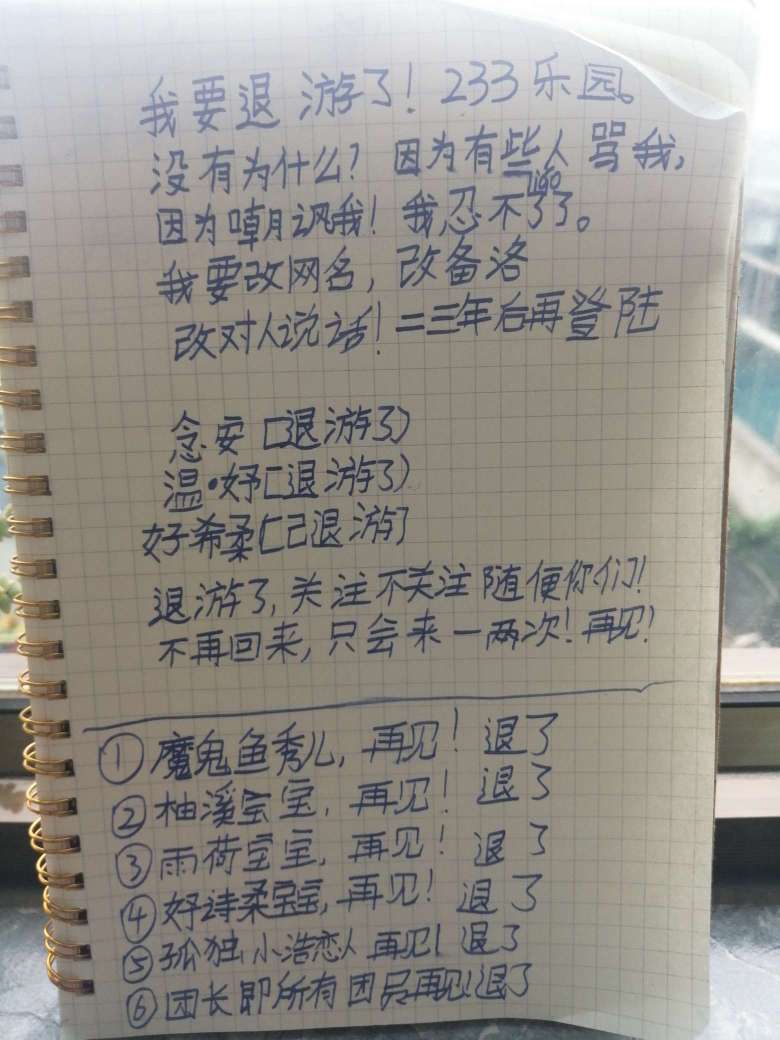 我要退 游了！233乐园。
没有为什么？因为有些人 骂我，
因为嘲讽我！我忍不 liǎo 了了。
我要改网名，改备洛
改对人说话！二三年后再登陆
念安［退游了）
温•妤［退游了）
好希柔［已退游］
退游了，关注不关注随便你们！
不再回来，只会来一两次！再见！
①魔鬼鱼秀儿，再见！退了
②柚溪宝宝，再见！退了
③雨荷宝宝，再见！退了
④好诗柔宝宝，再见！退了
⑤孤独小浩恋人 再见！退了
⑥团长即所有团员再见！退了